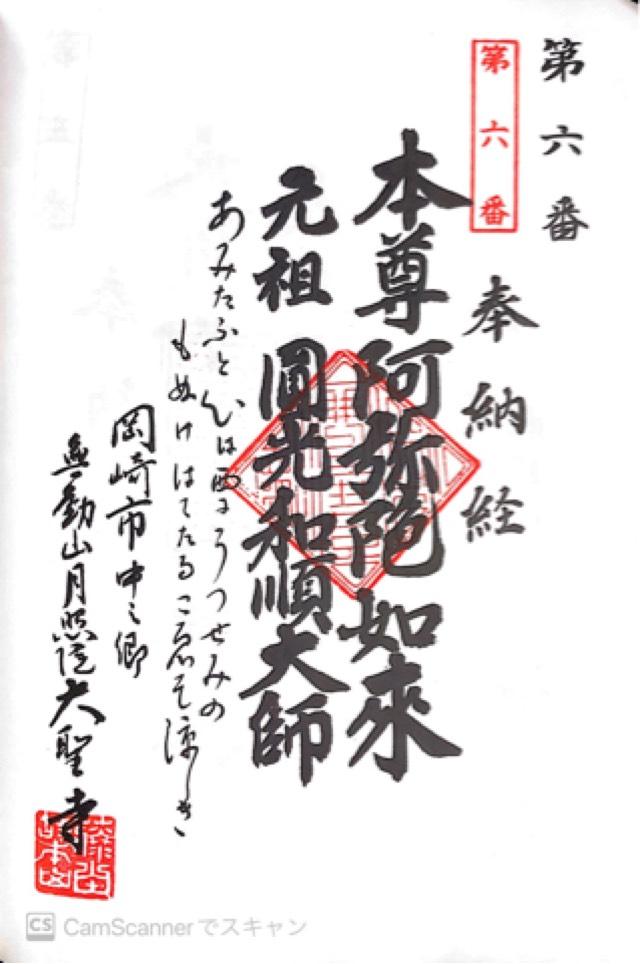 第六番
第六番
奉納経
本尊阿弥陀如來
元祖 圓光和順大師
あみたふと心は西にうつせみの
もぬけはてたるこゑそ涼しき
岡崎市中之郷
無動山月照院大聖寺
CS CamScannerでスキャン